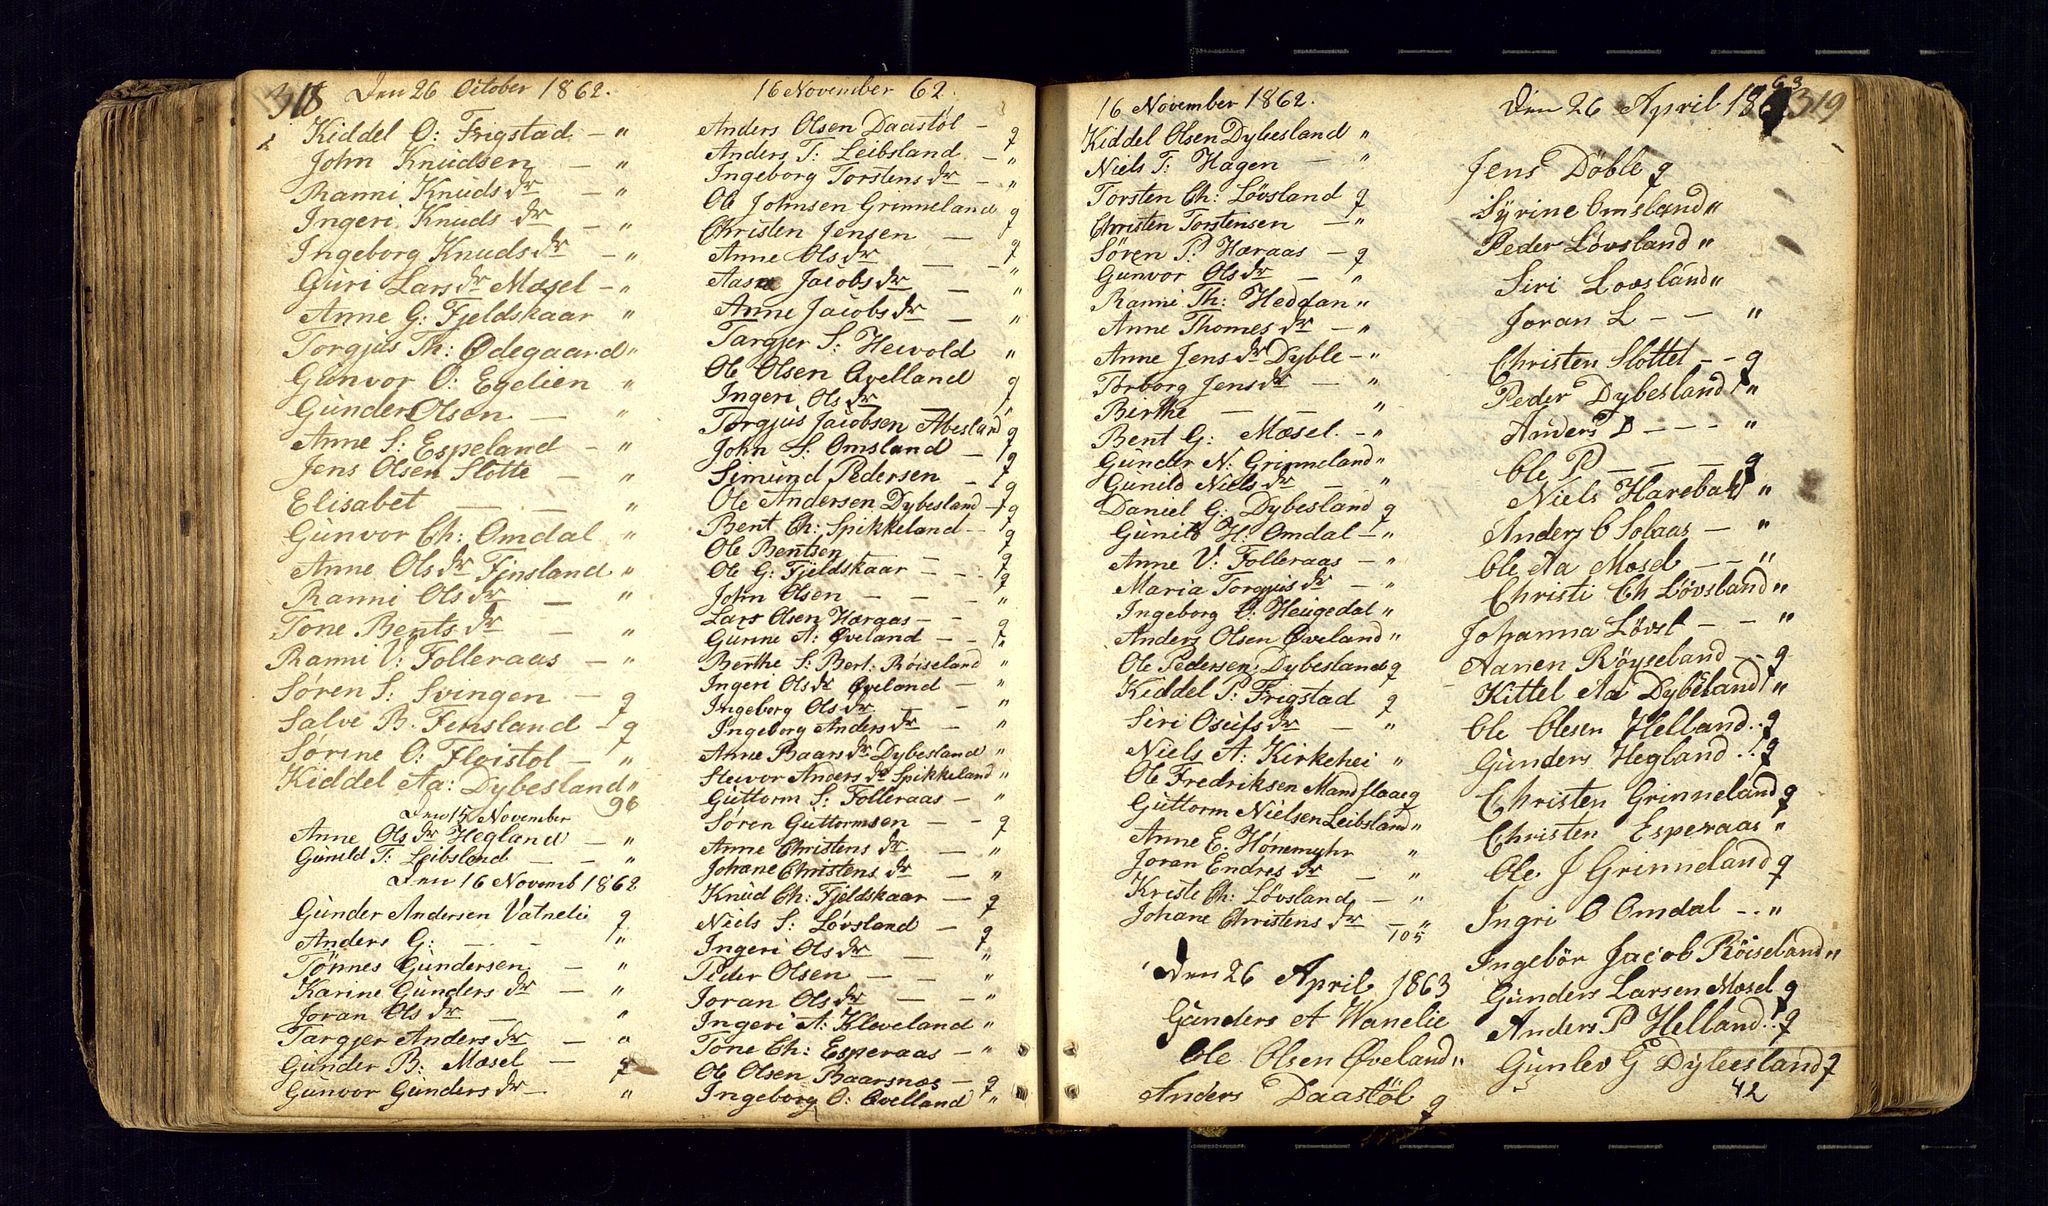 318
Den 26 October 1862.
Kiddel O: Frigstad – "
John Knudsen – "
Ranni Knuds dr – "
Ingeri Knuds dr – "
Ingeborg Knuds dr – "
Guri Lars dr Mæsel – "
Anne G: Fjeldskaar "
Torgjus Th: Ødegaard "
Gunvor O: Egelien "
Gunder Olsen – "
Anne S: Espeland – "
Jens Olsen Slotte "
Elisabet – – "
Gunvor Ch: Omdal "
Anne Ols dr Finsland "
Ranni Ols dr – "
Tone Bents dr – "
Ranni V: Folleraas – "
Søren S: Svingen – g
Salve B. Finsland – g
Sørine O: Fløistøl – "
Kiddel Aa: Dybesland "
96
Den 15 November
Anne Ols dr Hegland – "
Gunild T: Leibsland – – "
Den 16 Novemb 1862
Gunder Andersen Vatnelie g
Anders G: – – "
Tønnes Gundersen – "
Karine Gunders dr – "
Joran Ols dr – "
Targjer Anders dr – "
Gunder B: Mæsel – g
Gunvor Gunders dr – "
16 November 62.
Anders Olsen Daastøl – g
Anders T: Leibsland – "
Ingeborg Torstens dr – "
Ole Johnsen Grinneland g
Christen Jensen – g
Anne Ols dr – – "
Aasne Jacobs dr – "
Anne Jacobs dr – "
Targjer S: Hewold "
Ole Olsen Øvelland g
Ingeri Ols dr – "
Torgjus Jacobsen Abesland g
John S: Omsland – g
Simund Pedersen – g
Ole Andersen Dybesland – g
Bent Ch: Spikkeland – g
Ole Bentsen g
Ole G: Fjeldskaar – – g
John Olsen – – – "
Lars Olsen Haraas – – g
Gunne A: Øveland – – "
Berthe S: Bert: Røiseland "
Ingeri Ols dr Øveland – "
Ingeborg Ols dr – "
Ingeborg Anders dr – "
Anne Baars dr Dybesland "
Sleivor Anders dr Spikkeland "
Guttorm S: Folleraas – "
Søren Guttormsen – – g
Anne Christens dr – "
Johane Christens dr – "
Knud Ch: Fjeldskaar – g
Niels S: Løvsland – g
Ingeri Ols dr – "
Peder Olsen – – "
Joran Ols dr – – "
Ingeri A: Kleveland "
Tone Ch: Esperaas – "
Ole Olsen Baarsnæs – g
Ingeborg O: Øvelland "
16 November 1862.
Kiddel Olsen Dybesland "
Niels T: Hagen – "
Torsten Ch: Løvsland g
Christen Torstensen – "
Søren P: Haraas – g
Gunvor Ols dr – "
Ranni Th: Heddan "
Anne Thomes dr – "
Anne Jens dr Dyble – "
Torborg Jens dr – "
Birthe – – "
Bent G: Mæsel – "
Gunder N: Grinneland "
Gunild Niels dr – "
Daniel G: Dybesland g
Gunild H: Omdal – "
Anne V: Folleraas – "
Maria Torgjus dr – "
Ingeborg O: Heigedal "
Anders Olsen Øveland "
Ole Pedersen Dybesland g
Kiddel P: Frigstad g
Siri Oseifs dr – "
Niels A: Kirkehei "
Ole Fredriksen Mandflaae g
Guttorm Nielsen Leibsland "
Anne E. Hønemyhr "
Joran Endres dr – "
Kriste Ch: Løvsland – "
Johane Christens dr – "
105
Den 26 April 1863
Gunders A Wanelie
Ole Olsen Øveland "
Anders Daastøl g
319
Den 26 April 1863
Jens Döble g
Syrine Omsland "
Peder Lövsland "
Siri Lovsland "
Joran L – – "
Christen Slottel – – g
Peder Dybesland "
Anders D – – – "
Ole P – – – g
Niels Harebald "
Anders O Solaas – "
Ole Aa Mosel – – "
Christi Ch Lövsland "
Johanna Lövsl – – "
Aanen Röyseland – – g
Kittel Aa Dybeland "
Ole Olesen Helland .. g
Gunders Hegland .. g
Christen Grinneland g
Christen Esperaas "
Ole J Grinneland g
Ingri O Omdal – . "
Ingebör Jacob Röiseland "
Gunders Larsen Mosel g
Anders P Helland .. g
Gunlev G Dybeesland g
42